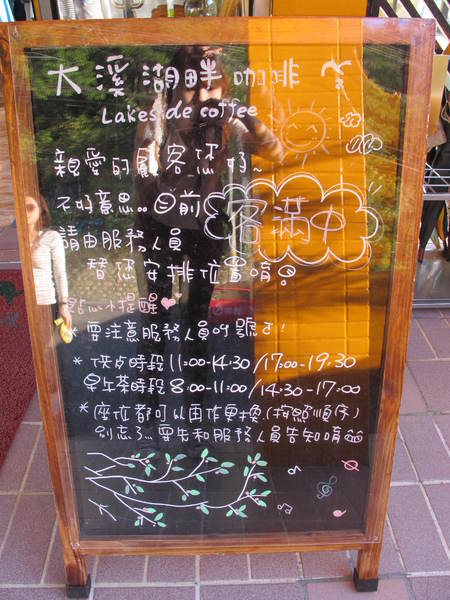 大溪湖畔咖啡
Lakeside coffee
親愛的顧客您好~
不好意思..目前客滿中
請由服務人員
替您安排位置唷!
貼心小提醒♥
*要注意服務人員叫號ㄛ!
*供点時段11:00-14:30/17:00-19:30
早午茶時段8:00-11:00/14:30-17:00
*座位都可以由作更換(按照順序)
別忘了要先和服務人員告知唷